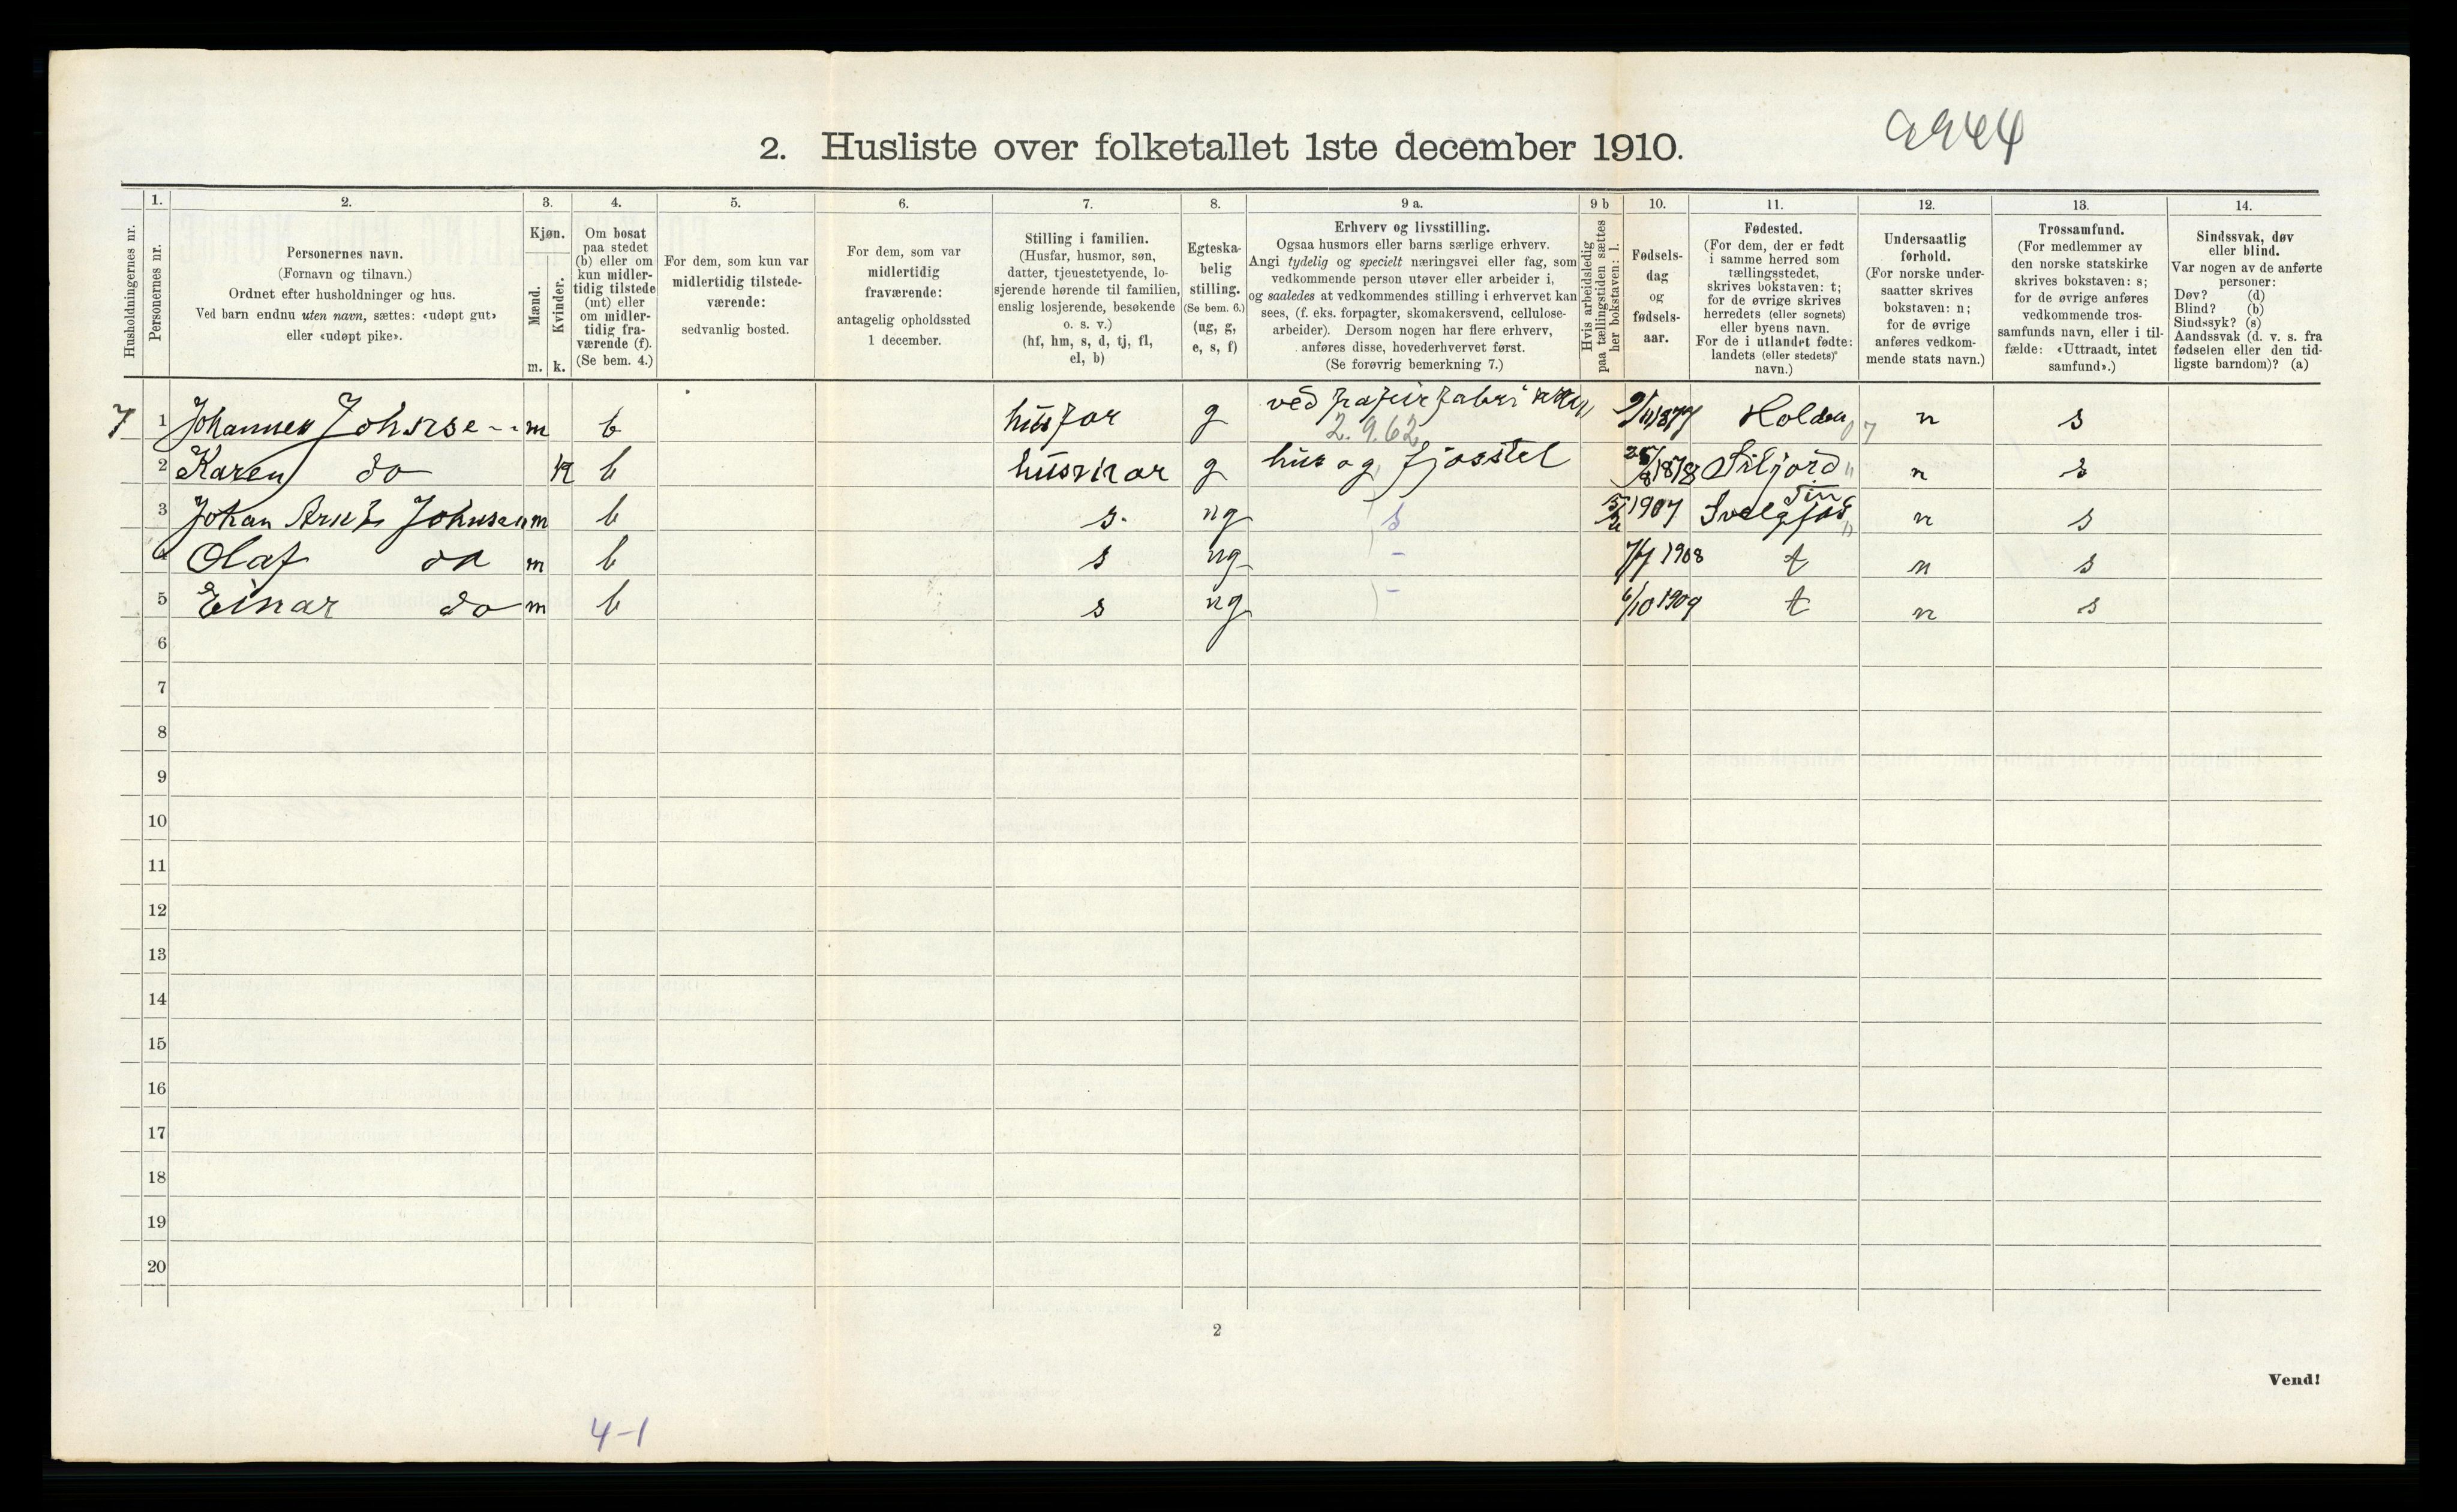 2. Husliste over folketallet 1ste december 1910.
9944
Husholdningernes nr.
1.
Personernes nr.
2.
Personernes navn.
(Fornavn og tilnavn.)
Ordnet efter husholdninger og hus.
Ved barn endnu uten navn, sættes: «udøpt gut»
eller «udøpt pike».
3.
Kjøn.
Mænd.
Kvinder.
m. k.
4.
Om bosat
paa stedet
(b) eller om
kun midler-
tidig tilstede
(mt) eller
om midler-
tidig fra-
værende (f).
(Se bem. 4.)
5.
For dem, som kun var
midlertidig tilstede-
værende:
sedvanlig bosted.
6.
For dem, som var
midlertidig
fraværende:
antagelig opholdssted
1 december.
7.
Stilling i familien.
(Husfar, husmor, søn,
datter, tjenestetyende, lo-
sjerende hørende til familien,
enslig losjerende, besøkende
o. s. v.)
(hf, hm, s, d, tj, fl,
el, b)
8.
Egteska-
belig
stilling.
(Se bem. 6.)
(ug, g,
e, s, f)
9 a.
Erhverv og livsstilling.
Ogsaa husmors eller barns særlige erhverv.
Angi tydelig og specielt næringsvei eller fag, som
vedkommende person utøver eller arbeider i,
og saaledes at vedkommendes stilling i erhvervet kan
sees, (f. eks. forpagter, skomakersvend, cellulose-
arbeider). Dersom nogen har flere erhverv,
anføres disse, hovederhvervet først.
(Se forøvrig bemerkning 7.)
9 b
Hvis arbeidsledig
paa tællingstiden sættes
her bokstaven: l.
10.
Fødsels-
dag
og
fødsels-
aar.
11.
Fødested.
(For dem, der er født
i samme herred som
tællingsstedet,
skrives bokstaven: t;
for de øvrige skrives
herredets (eller sognets)
eller byens navn.
For de i utlandet fødte:
landets (eller stedets)
navn.)
12.
Undersaatlig
forhold.
(For norske under-
saatter skrives
bokstaven: n;
for de øvrige
anføres vedkom-
mende stats navn.)
13.
Trossamfund.
(For medlemmer av
den norske statskirke
skrives bokstaven: s;
for de øvrige anføres
vedkommende tros-
samfunds navn, eller i til-
fælde: «Uttraadt, intet
samfund».)
14.
Sindssvak, døv
eller blind.
Var nogen av de anførte
personer:
Døv? (d)
Blind? (b)
Sindssyk? (s)
Aandssvak (d. v. s. fra
fødselen eller den tid-
ligste barndom)? (a)
7 1 Johannes Johnse-- m b husfar g ved papirfabrikken 9/11 1877 Holden 07 n s
2.9.62
2 Karen do k b husmor g hus og fjosstel 25/8 1878 Siljord " n s
3 Johan Johnsen m b s. ug s 1907 Tin Svelgfos " n s
4 Olaf do m b s ug - 7/7 1908 t n s
5 Einar do m b s ug - 6/10 1909 t n s
6
7
8
9
10
11
12
13
14
15
16
17
18
19
20
2
Vend!
4-1